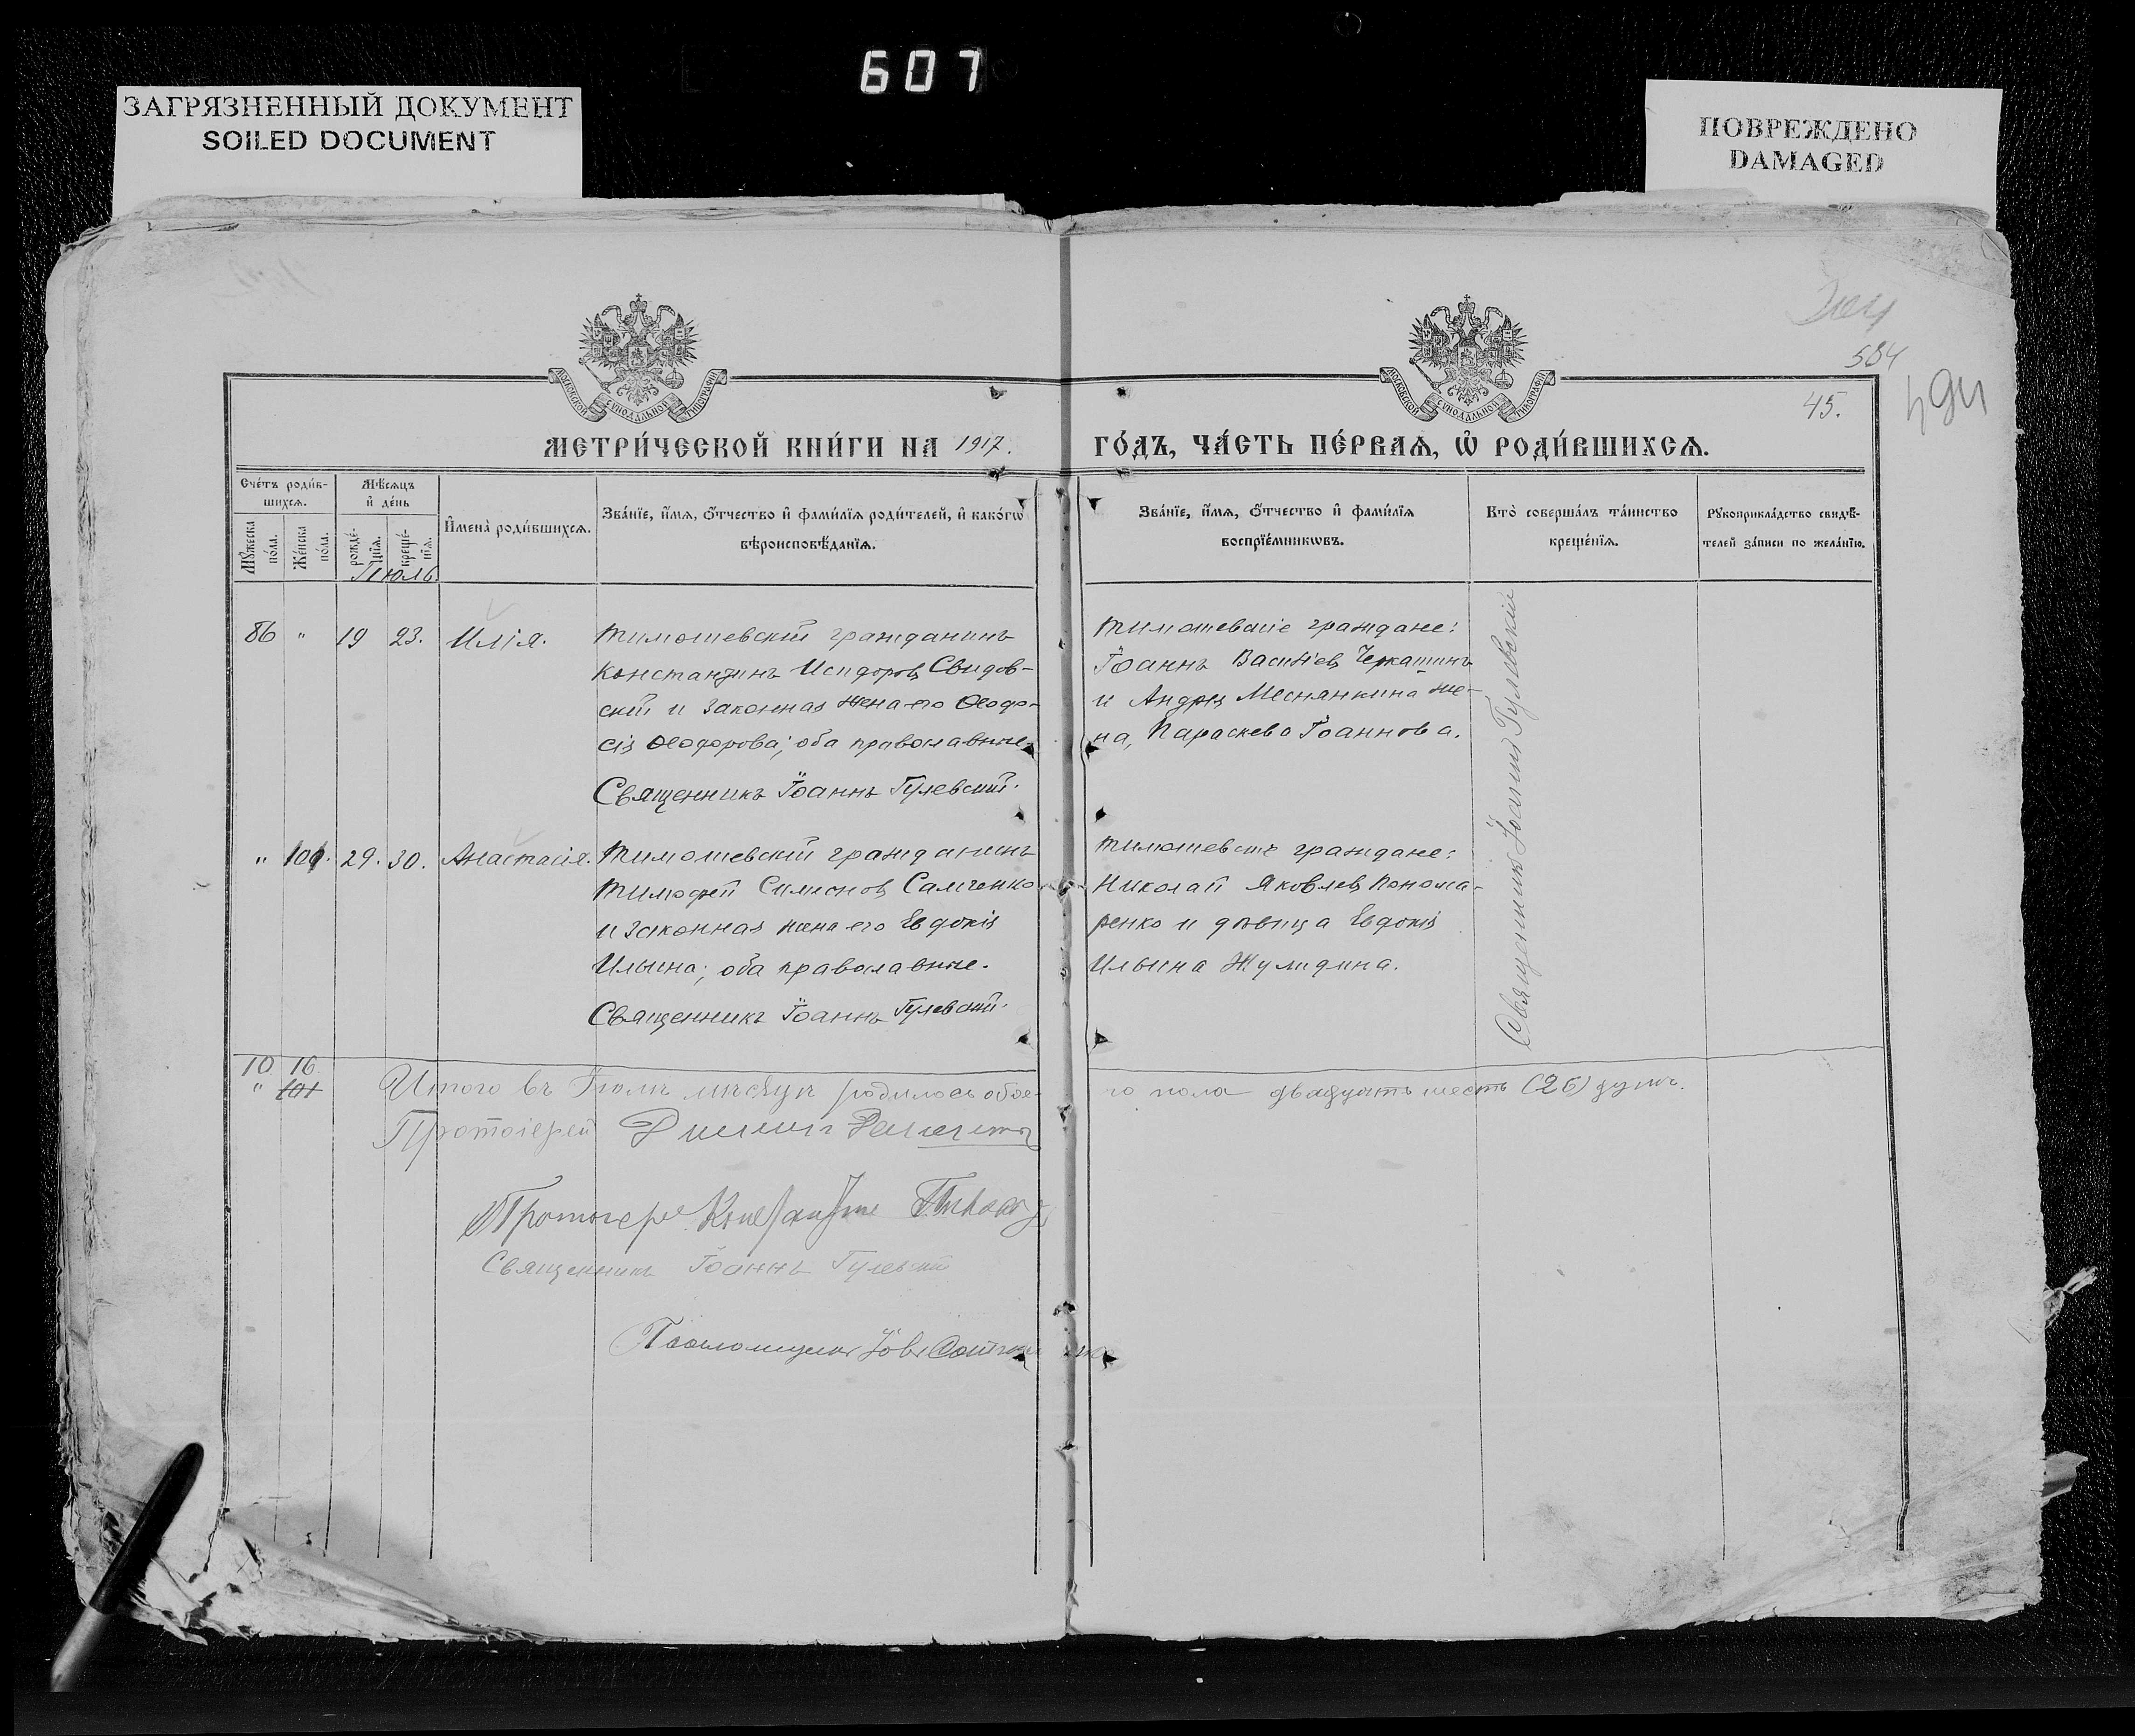 607
ЗАГРЯЗНЕННЫЙ ДОКУМЕНТ
SOILED DOCUMENT
ПОВРЕЖДЕНО
DAMAGED
МОСКОВСКОЙ СѴНОДАЛЬНОЙ ТИПОГРАФІИ
МОСКОВСКОЙ СѴНОДАЛЬНОЙ ТИПОГРАФІИ
584
494
45.
МЕТРИ́ЧЕСКОЙ КНИ́ГИ НА 1917. ГО́ДЪ, ЧА́СТЬ ПЕ́РВАѦ, Ѡ҆ РОДИ́ВШИХСѦ.
Сче́тъ роди́в-
шихсѧ.
Мѣ́сѧцъ
и҆ де́нь
Мꙋ́жеска
по́ла.
Же́нска
по́ла.
рожде́-
нїѧ.
креще́-
нїѧ.
И҆мена̀ роди́вшихсѧ.
Зва́нїе, и҆́мѧ, ѻ҆́тчество и҆ фами́лїѧ роди́телей, и҆ како́гѡ
вѣроисповѣ́данїѧ.
Зва́нїе, и҆́мѧ, ѻ҆́тчество и҆ фами́лїѧ
воспрїе́мникѡвъ.
Кто̀ соверша́лъ та́инство
креще́нїѧ.
Рꙋкоприкла́дство свидѣ́-
телей за́писи по жела́нїю.
Іюль
86 " 19 23. Илія.
Тимошевскій гражданинъ
Константинъ Исидоровъ Свидов-
скій и законная жена его Ѳеодо-
сія Ѳеодорова; оба православные.
Священникъ Іоаннъ Гулевскій.
Тимошевскіе граждане:
Іоаннъ Васильевъ Черкашинъ
и Андрея Меснянкина же-
на, Параскева Іоаннова.
Священникъ Іоаннъ Гулевскій
" 101. 29. 30. Анастасія.
Тимошевскій гражданинъ
Тимофей Симеоновъ Самченко
и законная жена его Евдокія
Ильина; оба православные.
Священникъ Іоаннъ Гулевскій.
Тимошевскіе граждане:
Николай Яковлевъ Понома-
ренко и дѣвица Евдокія
Ильина Жулидина.
10 16
" 101
Итого въ Іюлѣ мѣсяцѣ родилось обое-го пола двадцать шесть (26) душъ.
Протоіерей
Протоіерей Константинъ
Священникъ Іоаннъ Гулевскій
Псаломщикъ Іовъ